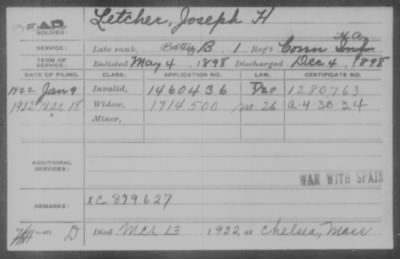 DEAD. Letcher, Joseph H
SOLDIER:
SERVICE: Late rank, Battery B 1 Reg't Conn H.A.
TERM OF SERVICE: Enlisted May 4 1898 Discharged Dec 4 1898
DATE OF FILING. CLASS. APPLICATION NO. LAW. CERTIFICATE NO.
1922 Jan 9 Invalid, 1460436 1280763
1932 18 Widow, 1714500 26 a-4-30-24
Minor,
ADDITIONAL SERVICES:
WAR WITH SPAIN
REMARKS: XC 899627
D Died Mch 13 1922 at Chelsea, Mass